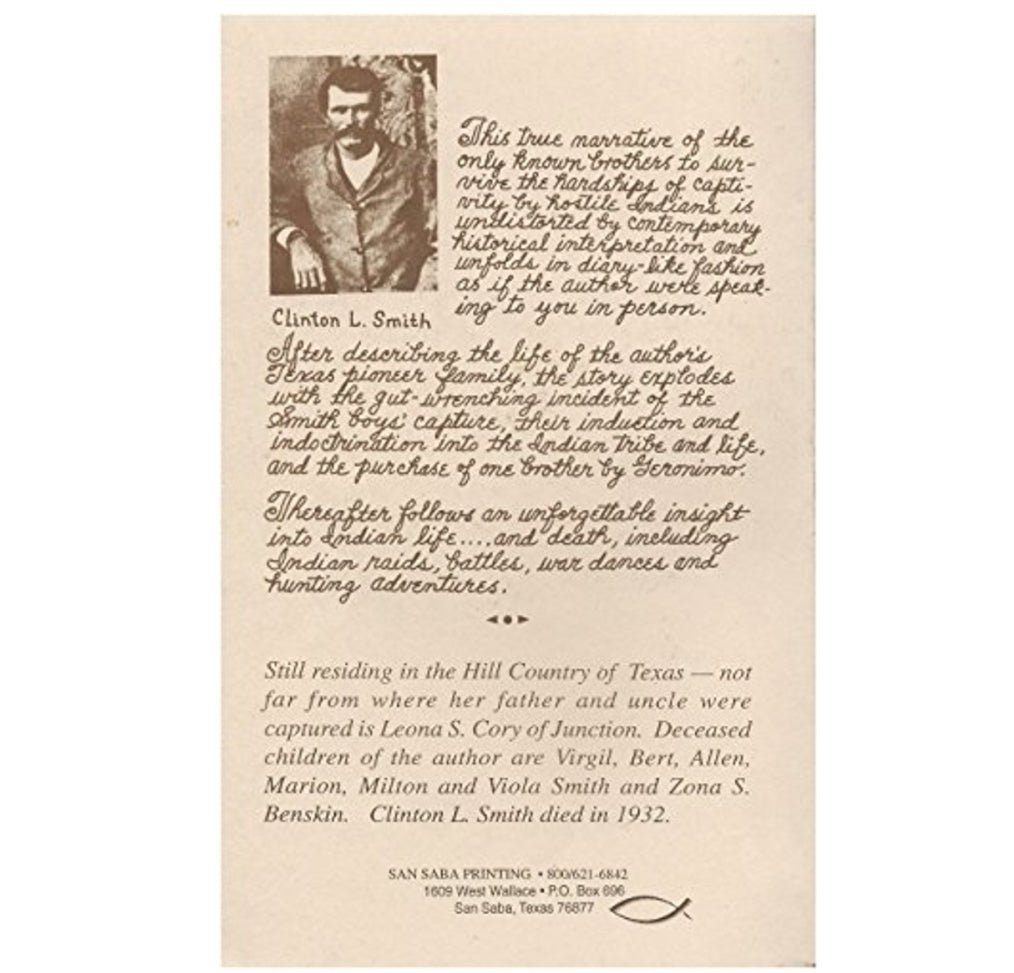 This true narrative of the
only known brothers to sur-
vive the hardships of capti-
vity by hostile Indians is
undistorted by contemporary
historical interpretation and
unfolds in diary-like fashion
as if the author were speak-
ing to you in person.
Clinton L. Smith
After describing the life of the author's
Texas pioneer family, the story explodes
with the gut-wrenching incident of the
Smith boys' capture, their induction and
indoctrination into the Indian Tribe and life,
and the purchase of one brother by Geronimo.
Thereafter follows an unforgettable insight
into Indian life....and death, including
Indian raids, battles, war dances and
hunting adventures.
Still residing in the Hill Country of Texas — not
far from where her father and uncle were
captured is Leona S. Cory of Junction. Deceased
children of the author are Virgil, Bert, Allen,
Marion, Milton and Viola Smith and Zona S.
Benskin. Clinton L. Smith died in 1932.
SAN SABA PRINTING • 800/621-6842
1609 West Wallace • P.O. Box 696
San Saba, Texas 76877